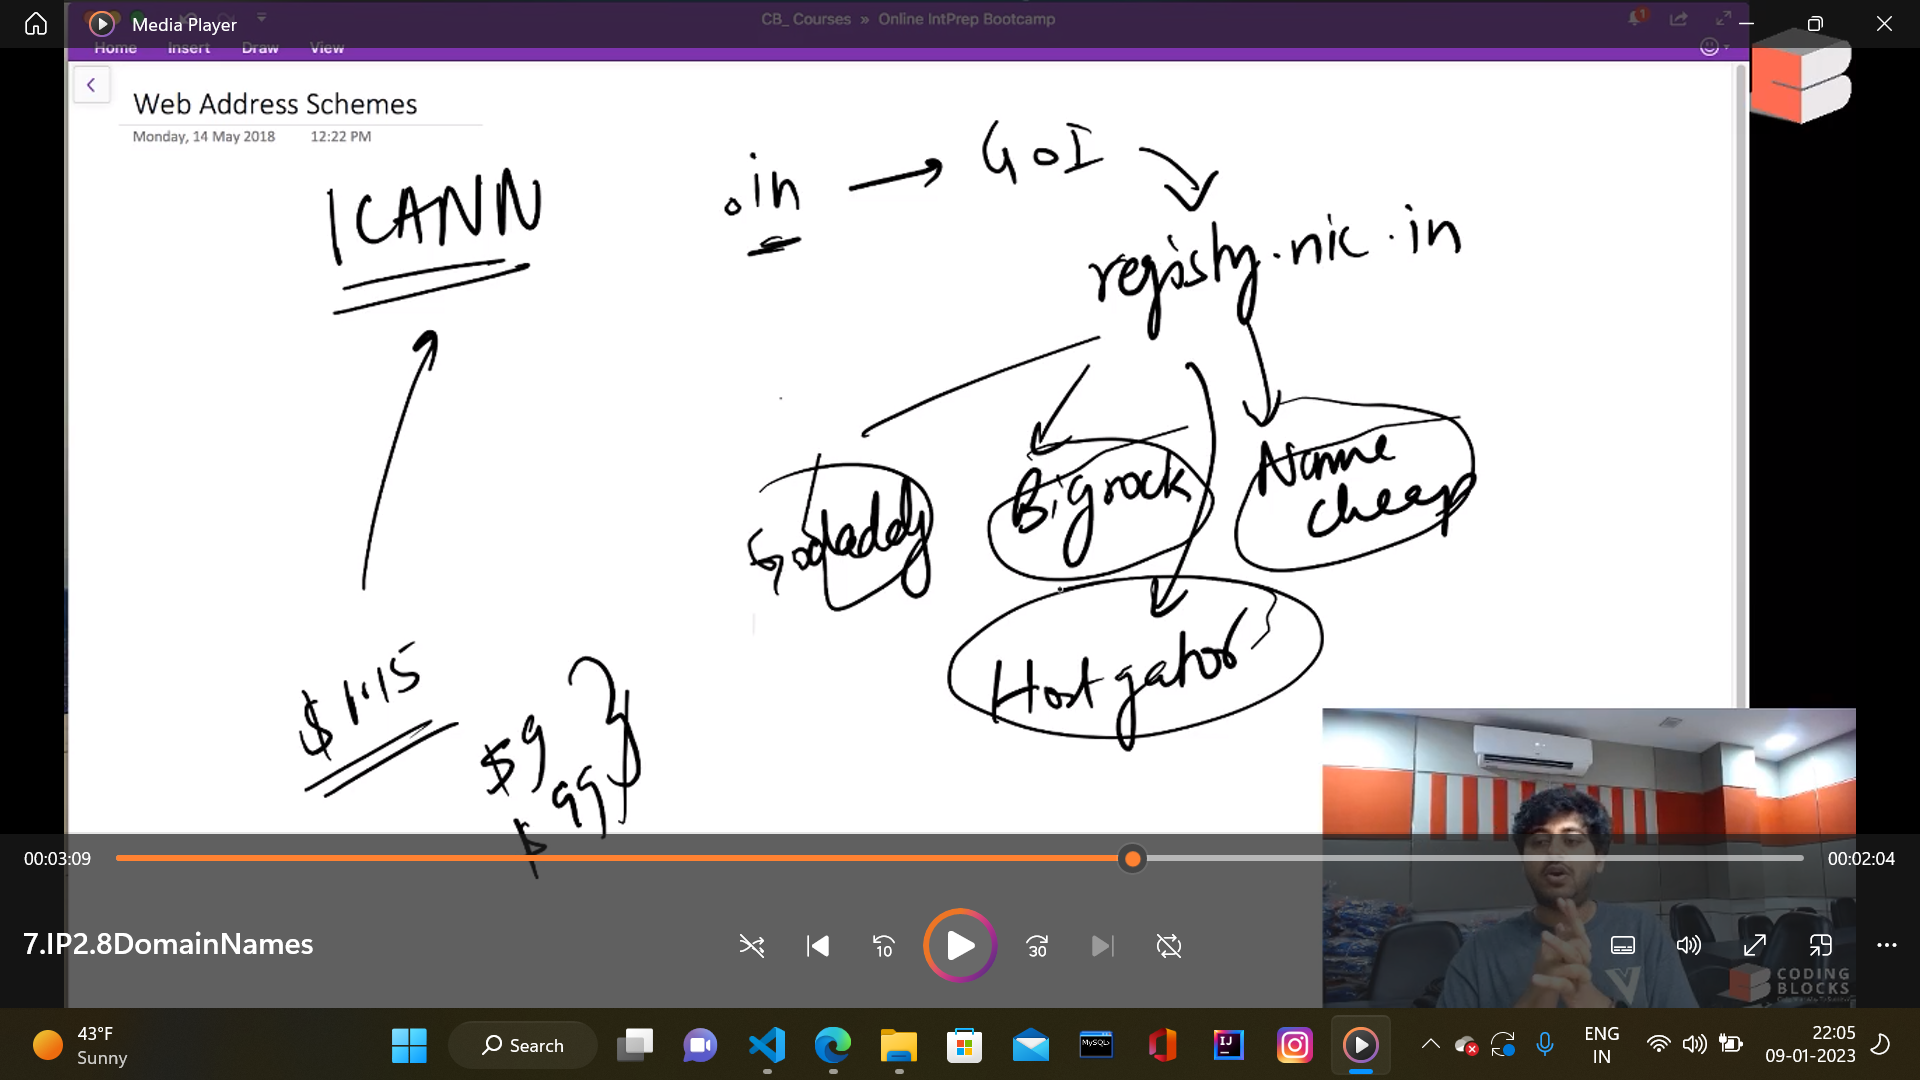 Media Player
CB_ Courses » Online IntPrep Bootcamp
1
Home Insert Draw View
Web Address Schemes
Monday, 14 May 2018 12:22 PM
ICANN
.in → GoI
registry.nic.in
Godaddy
Bigrock
Name cheap
Hostgator
$1.15
$9
99
00:03:09
00:02:04
7.IP2.8DomainNames
10
30
CODING
BLOCKS
43°F
Sunny
Search
MySQL
IJ
ENG
IN
22:05
09-01-2023